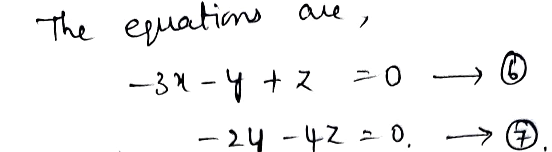 The equations are,
-3x - y + z = 0 → ⑥
-2y - 4z = 0. → ⑦.